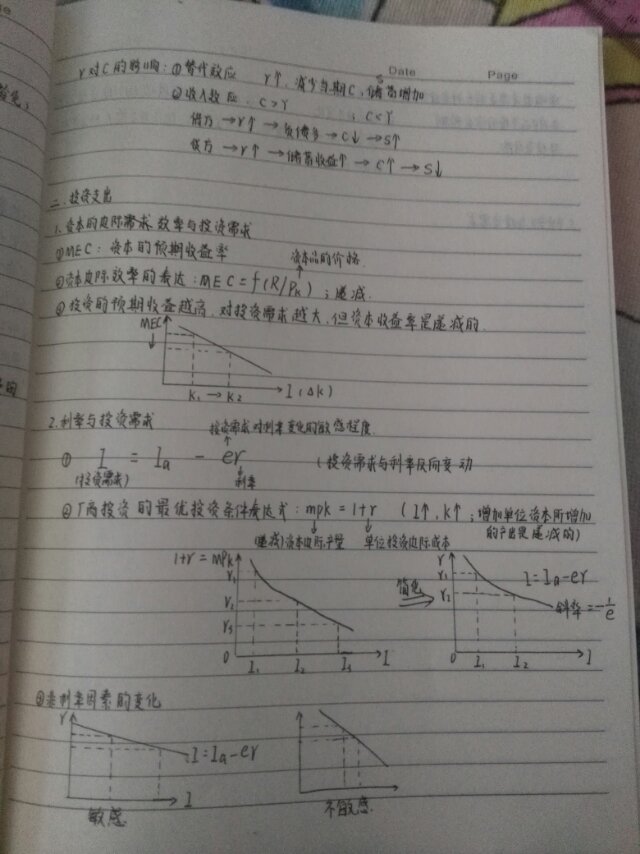 Date Page
r对C的影响:①替代效应 r↑,减少当期C,储蓄增加
②收入效应,C>Y ,C<Y
借方→r↑→负债多→C↓→S↑
贷方→r↑→储蓄收益↑→C↑→S↓
二、投资支出
1.资本的边际需求、效率与投资需求
①MEC:资本的预期收益率 资本品的价格
②资本边际效率的表达:MEC=f(R/Pk);递减
③投资的预期收益越高,对投资需求越大,但资本收益率是递减的
MEC
K1→K2 I(ΔK)
2.利率与投资需求
投资需求对利率变化的敏感程度
① I = Ia - er (投资需求与利率反向变动
(投资需求) 利率
②厂商投资的最优投资条件表达式:mpk=1+r (I↑,K↑;增加单位资本所增加
的产出是递减的)
(递减)资本边际产量 单位投资边际成本
1+r=MPk r
r1 r1 I=Ia-er
简化
r2 r2 斜率=-1/e
r3
0 I1 I2 I3 I 0 I1 I2 I
利率因素的变化
r
I=Ia-er
I
敏感 不敏感